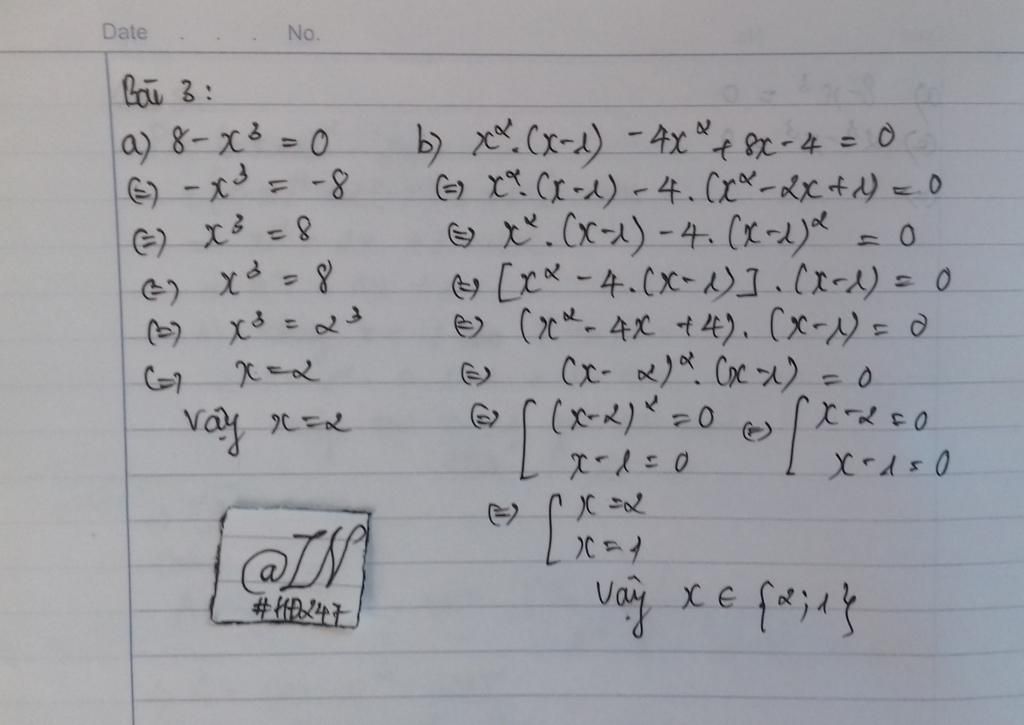 Date . . . No.
Bài 3:
a) 8 - x³ = 0
⇔ -x³ = -8
⇔ x³ = 8
⇔ x³ = 8
⇔ x³ = 2³
⇔ x = 2
Vậy x = 2
b) x². (x-1) - 4x² + 8x - 4 = 0
⇔ x². (x-1) - 4. (x² - 2x + 1) = 0
⇔ x². (x-1) - 4. (x-1)² = 0
⇔ [x² - 4. (x-1)]. (x-1) = 0
⇔ (x² - 4x + 4). (x-1) = 0
⇔ (x - 2)². (x-1) = 0
⇔ [ (x-2)² = 0 ⇔ [ x - 2 = 0
x - 1 = 0 x - 1 = 0
⇔ [ x = 2
x = 1
Vậy x ∈ {2; 1}
@IN
#HD247